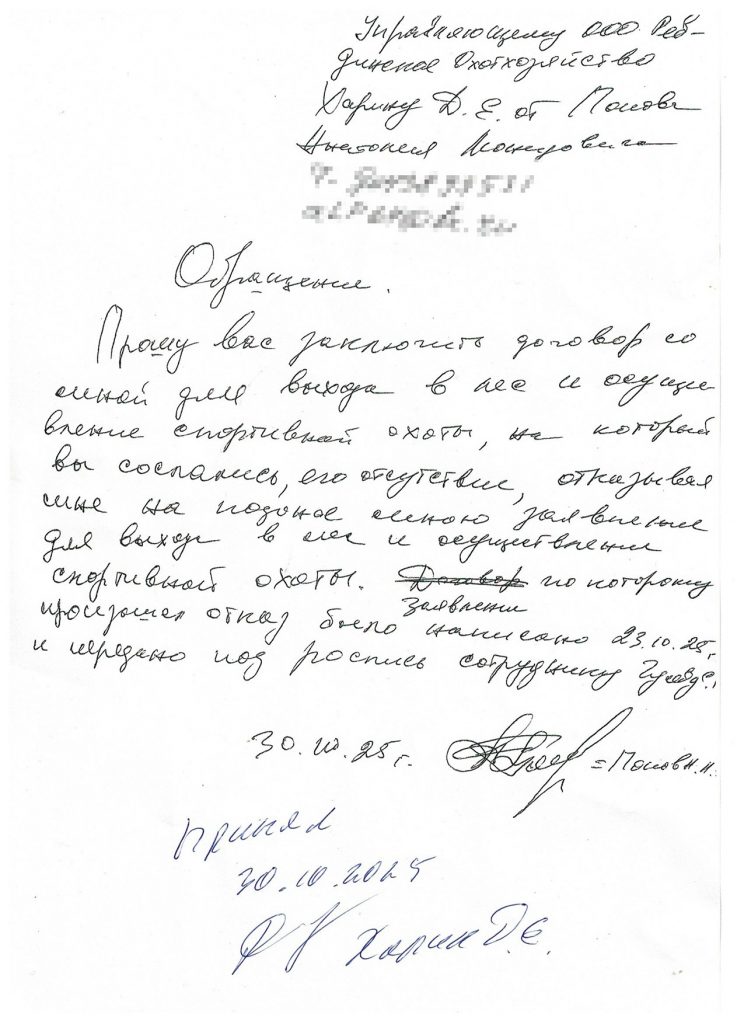 Управляющему ООО Реб-
динское Охотхозяйство
Харину Д.Е. от Попова
Обращение.
Прошу вас заключить договор со
мной для выхода в лес и осущи
вление спортивной охоты, на который
вы сослались, его отсутствии, отказывая
мне на поданое мною заявление
для выхода в лес и осуществлении
спортивной охоты. Договор по которому
заявлени
произошел отказ было написано 23.10.25г.
и передано под роспись сотруднику
30.10.25г. = Попов Н.Н.
принял
30.10.2025
Харин Д.Е.